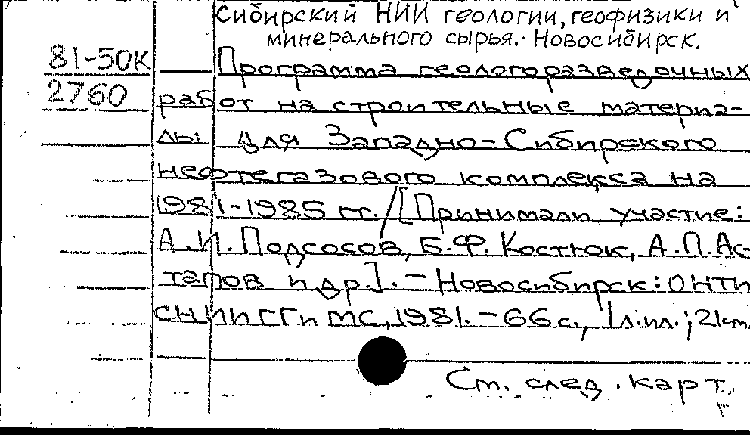 Сибирский НИИ геологии, геофизики и
минерального сырья. Новосибирск.
81-50К
2760
Программа геологоразведочных
работ на строительные материа-
лы для Западно-Сибирского
нефтегазового комплекса на
1981-1985 гг. / [Принимали участие:
А.И. Подсосов, Б.Ф. Костюк, А.П. Ас
тапов и др.]. - Новосибирск: ОНТИ
СНИИГГиМС, 1981. - 66 с., 1 л. ил.; 21 см.
См. след. карт.